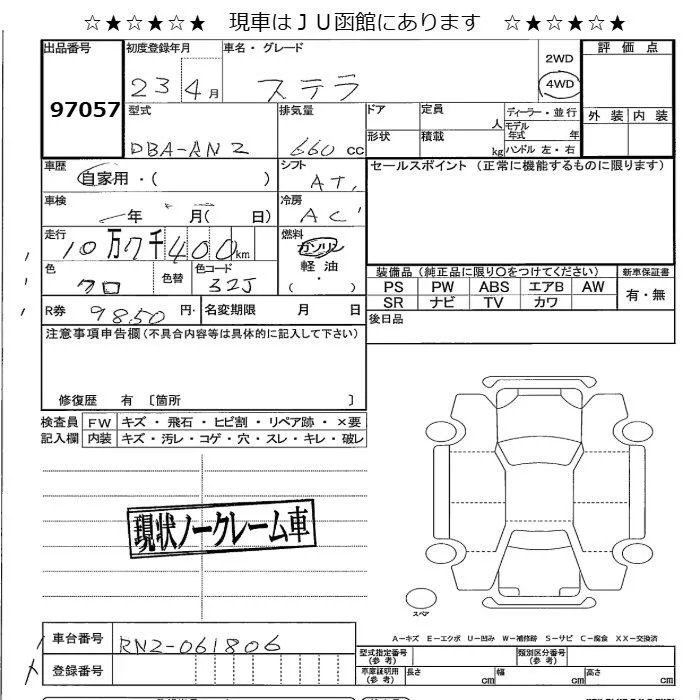 ☆★☆★☆★ 現車はJU函館にあります ☆★☆★☆★
出品番号 初度登録年月 車名・グレード 2WD 評価点
97057 23 4月 ステラ 4WD
型式 排気量 ドア 定員 人 ディーラー・並行 外装 内装
DBA-RN2 660cc 形状 積載 kg モデル年式 年 ハンドル 左・右
車歴 自家用・( ) シフト AT セールスポイント (正常に機能するものに限ります)
車検 年 月( 日) 冷房 AC
走行 10万7千400km 燃料 ガソリン
色 クロ 色替 色コード 32J 軽油 ( ・ )
装備品 (純正品に限り○をつけてください) 新車保証書
PS PW ABS エアB AW 有・無
SR ナビ TV カワ
R券 9850円 名変期限 月 日 後日品
注意事項申告欄 (不具合内容等は具体的に記入して下さい)
修復歴 有 [箇所 ]
検査員 FW キズ・飛石・ヒビ割・リペア跡・×要
記入欄 内装 キズ・汚レ・コゲ・穴・スレ・キレ・破レ
現状ノークレーム車
スペア
A-キズ E-エクボ U-凹み W-補修跡 S-サビ C-腐食 XX-交換済
車台番号 RN2-061806
型式指定番号 (参考) 類別区分番号 (参考)
登録番号 車庫証明用 (参考) 長さ cm 幅 cm 高さ cm